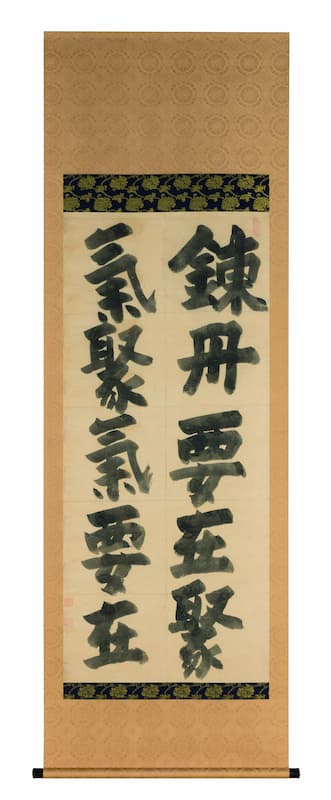 錬丹要在聚
氣聚氣要在